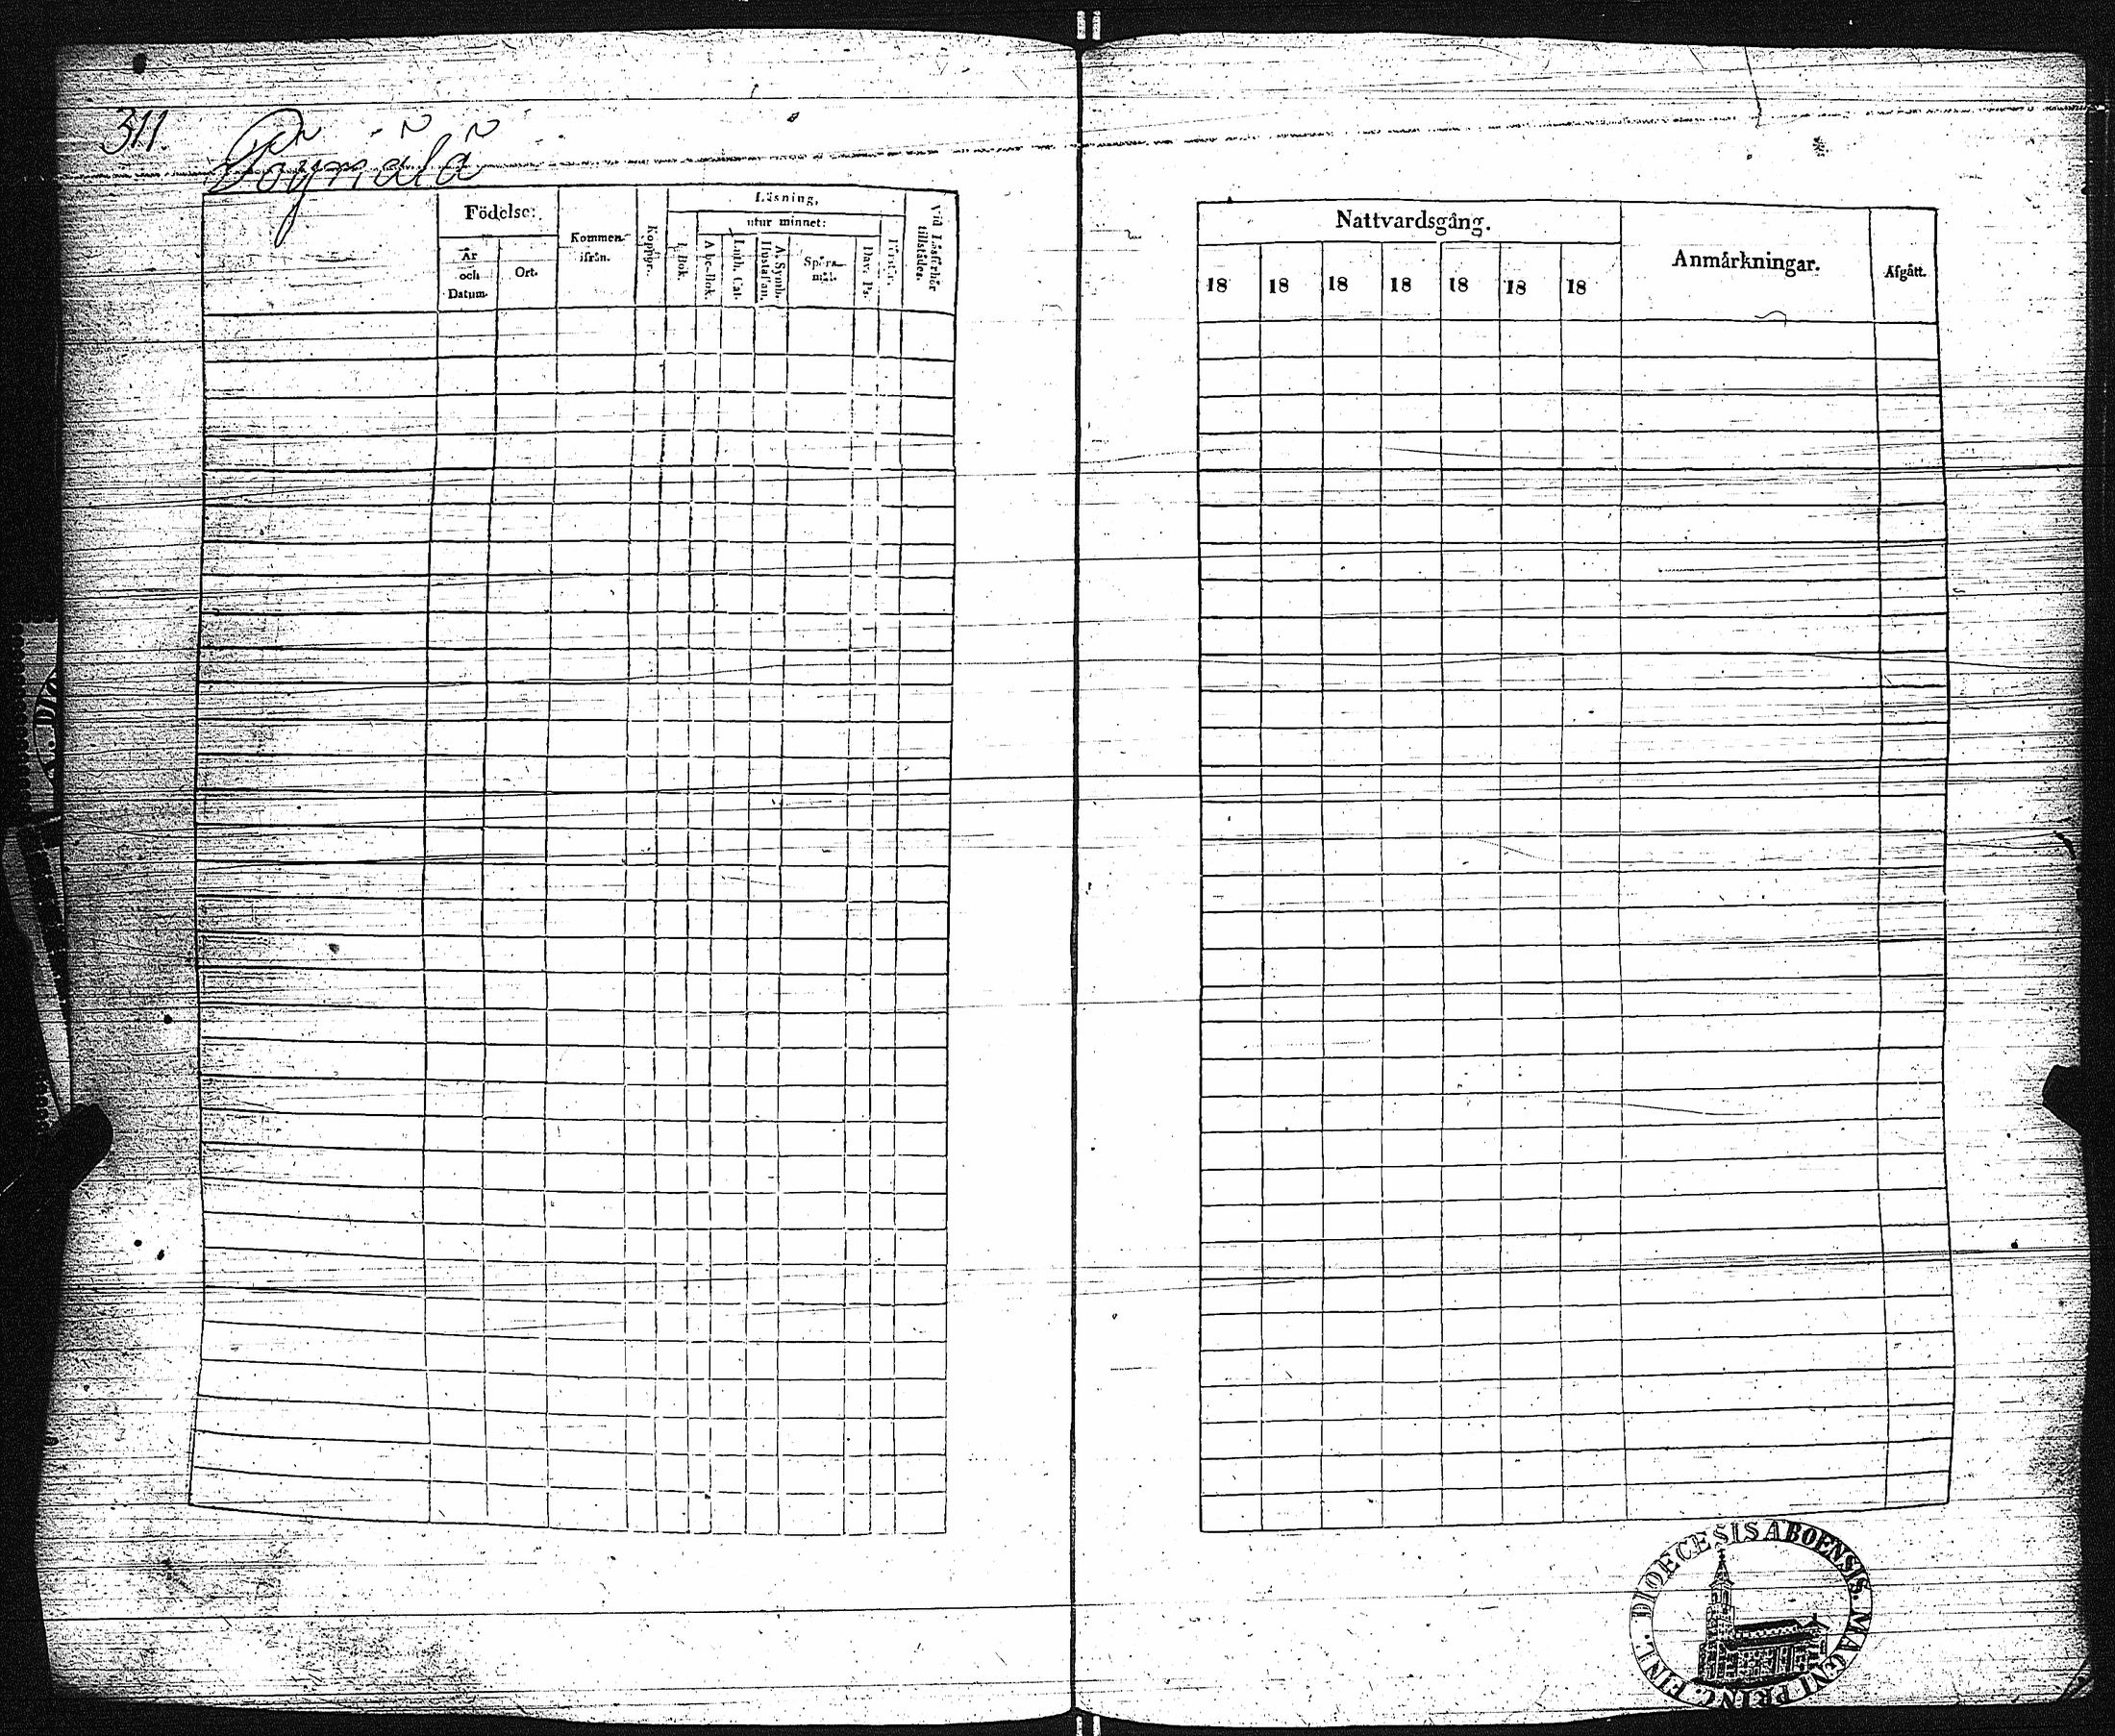 311.
Pöymälä
Födelse:
År och Datum.
Ort.
Kommen ifrån.
Koppor.
Läsning,
utur minnet:
I. Bok.
A be-Bok.
Luth. Cat.
A. Symb. Hustaflan.
Spörsmål.
Dav. Ps.
Förstår.
Vid Läsförhör tillstädes.
Nattvardsgång.
18 18 18 18 18 18 18
Anmärkningar.
Afgått.
DIOECESIS ABOENSIS. MAGNI PRINC. FINL.